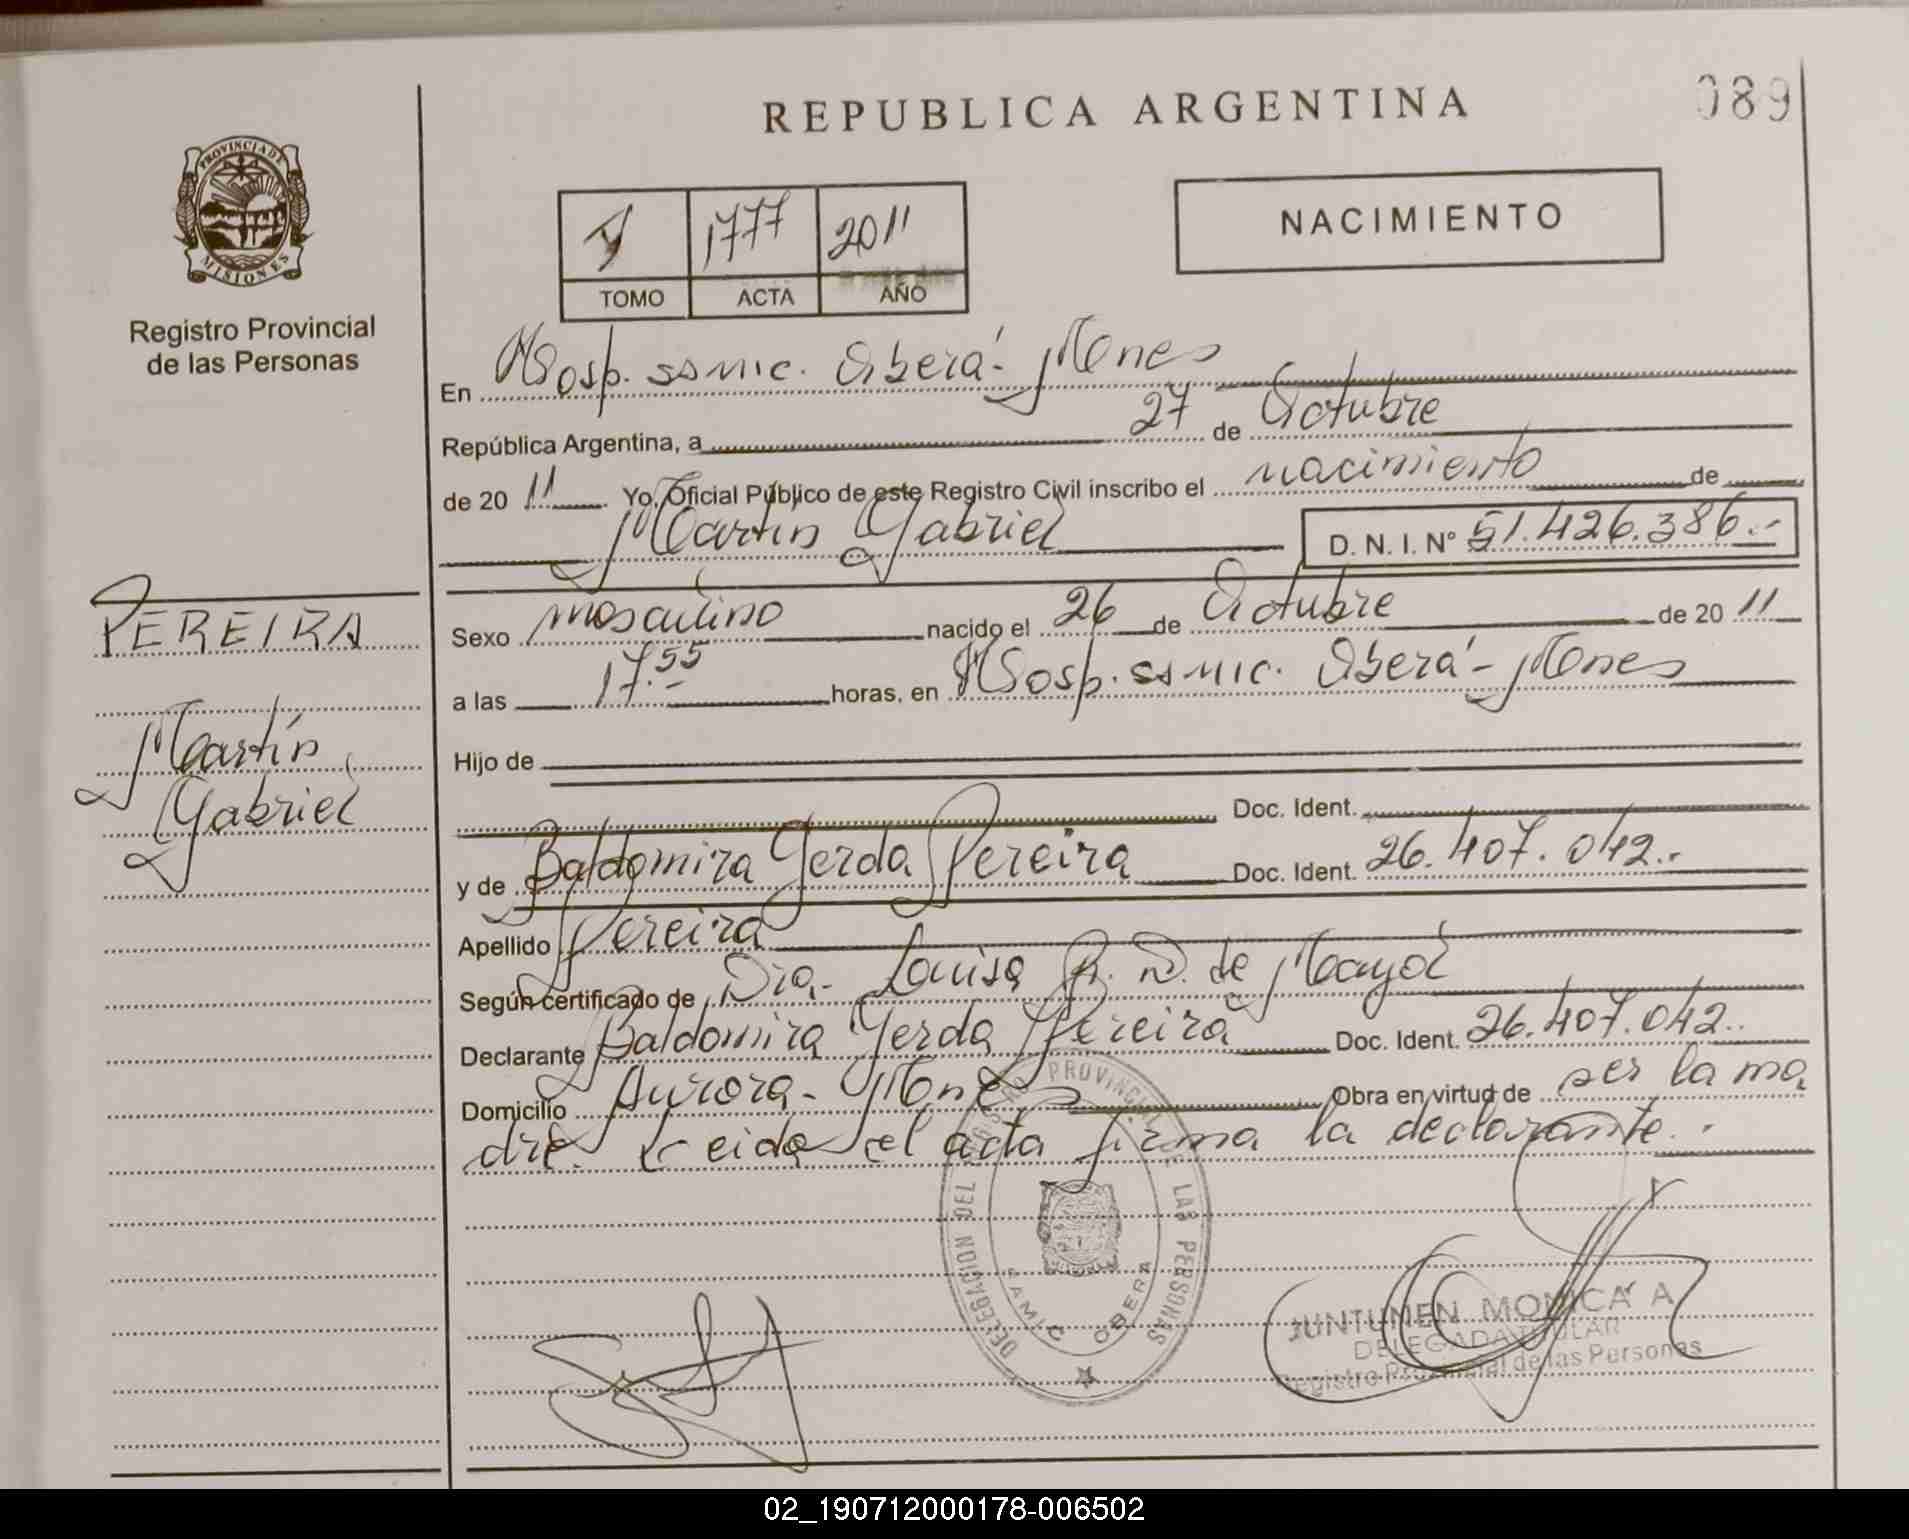 REPUBLICA ARGENTINA
089
PROVINCIA DE
MISIONES
Registro Provincial
de las Personas
1777 2011
TOMO ACTA AÑO
NACIMIENTO
En Hosp. SSMIC. Oberá - Mones
República Argentina, a 27 de Octubre
de 20 11 Yo, Oficial Público de este Registro Civil inscribo el nacimiento de
Martín Gabriel D. N. I. N° 51.426.386.-
PEREIRA
Martín
Gabriel
Sexo masculino nacido el 26 de Octubre de 20 11
a las 17.55 horas, en Hosp. SSMIC. Oberá - Mones
Hijo de
Doc. Ident.
y de Baldomira Gerda Pereira Doc. Ident. 26.407.042.-
Apellido Pereira
Según certificado de Dra. Luisa R. D. de Mayol
Declarante Baldomira Gerda Pereira Doc. Ident. 26.407.042..
Domicilio Aurora - Mones Obra en virtud de ser la ma
dre. Leida el acta firma la declarante.
DELEGACION DEL REGISTRO PROVINCIAL DE LAS PERSONAS
SAMIC OBERA
JUNTUNEN MONICA A
DELEGADA TITULAR
Registro Provincial de las Personas
02_190712000178-006502